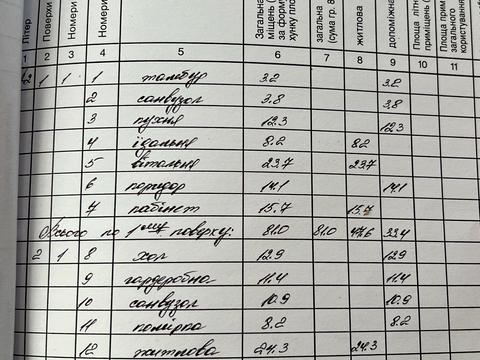 Літер
Поверхи
Номери
Номери
Загальна
міщень (
за форму
хунку пло
загальна
(сума гр. 8
житлова
допоміжна
Площа літн
приміщень (
Площа прим
загального
користування
1 2 3 4 5 6 7 8 9 10 11
1 1 1 тамбур 3.2 3.2
2 санвузол 3.8 3.8
3 кухня 12.3 12.3
4 їдальня 8.2 8.2
5 вітальня 23.7 23.7
6 коридор 14.1 14.1
7 кабінет 15.7 15.7
Всього по 1му поверху: 81.0 81.0 47.6 33.4
2 1 8 хол 12.9 12.9
9 гардеробна 11.4 11.4
10 санвузол 10.9 10.9
11 комірка 8.2 8.2
12 житлова 24.3 24.3